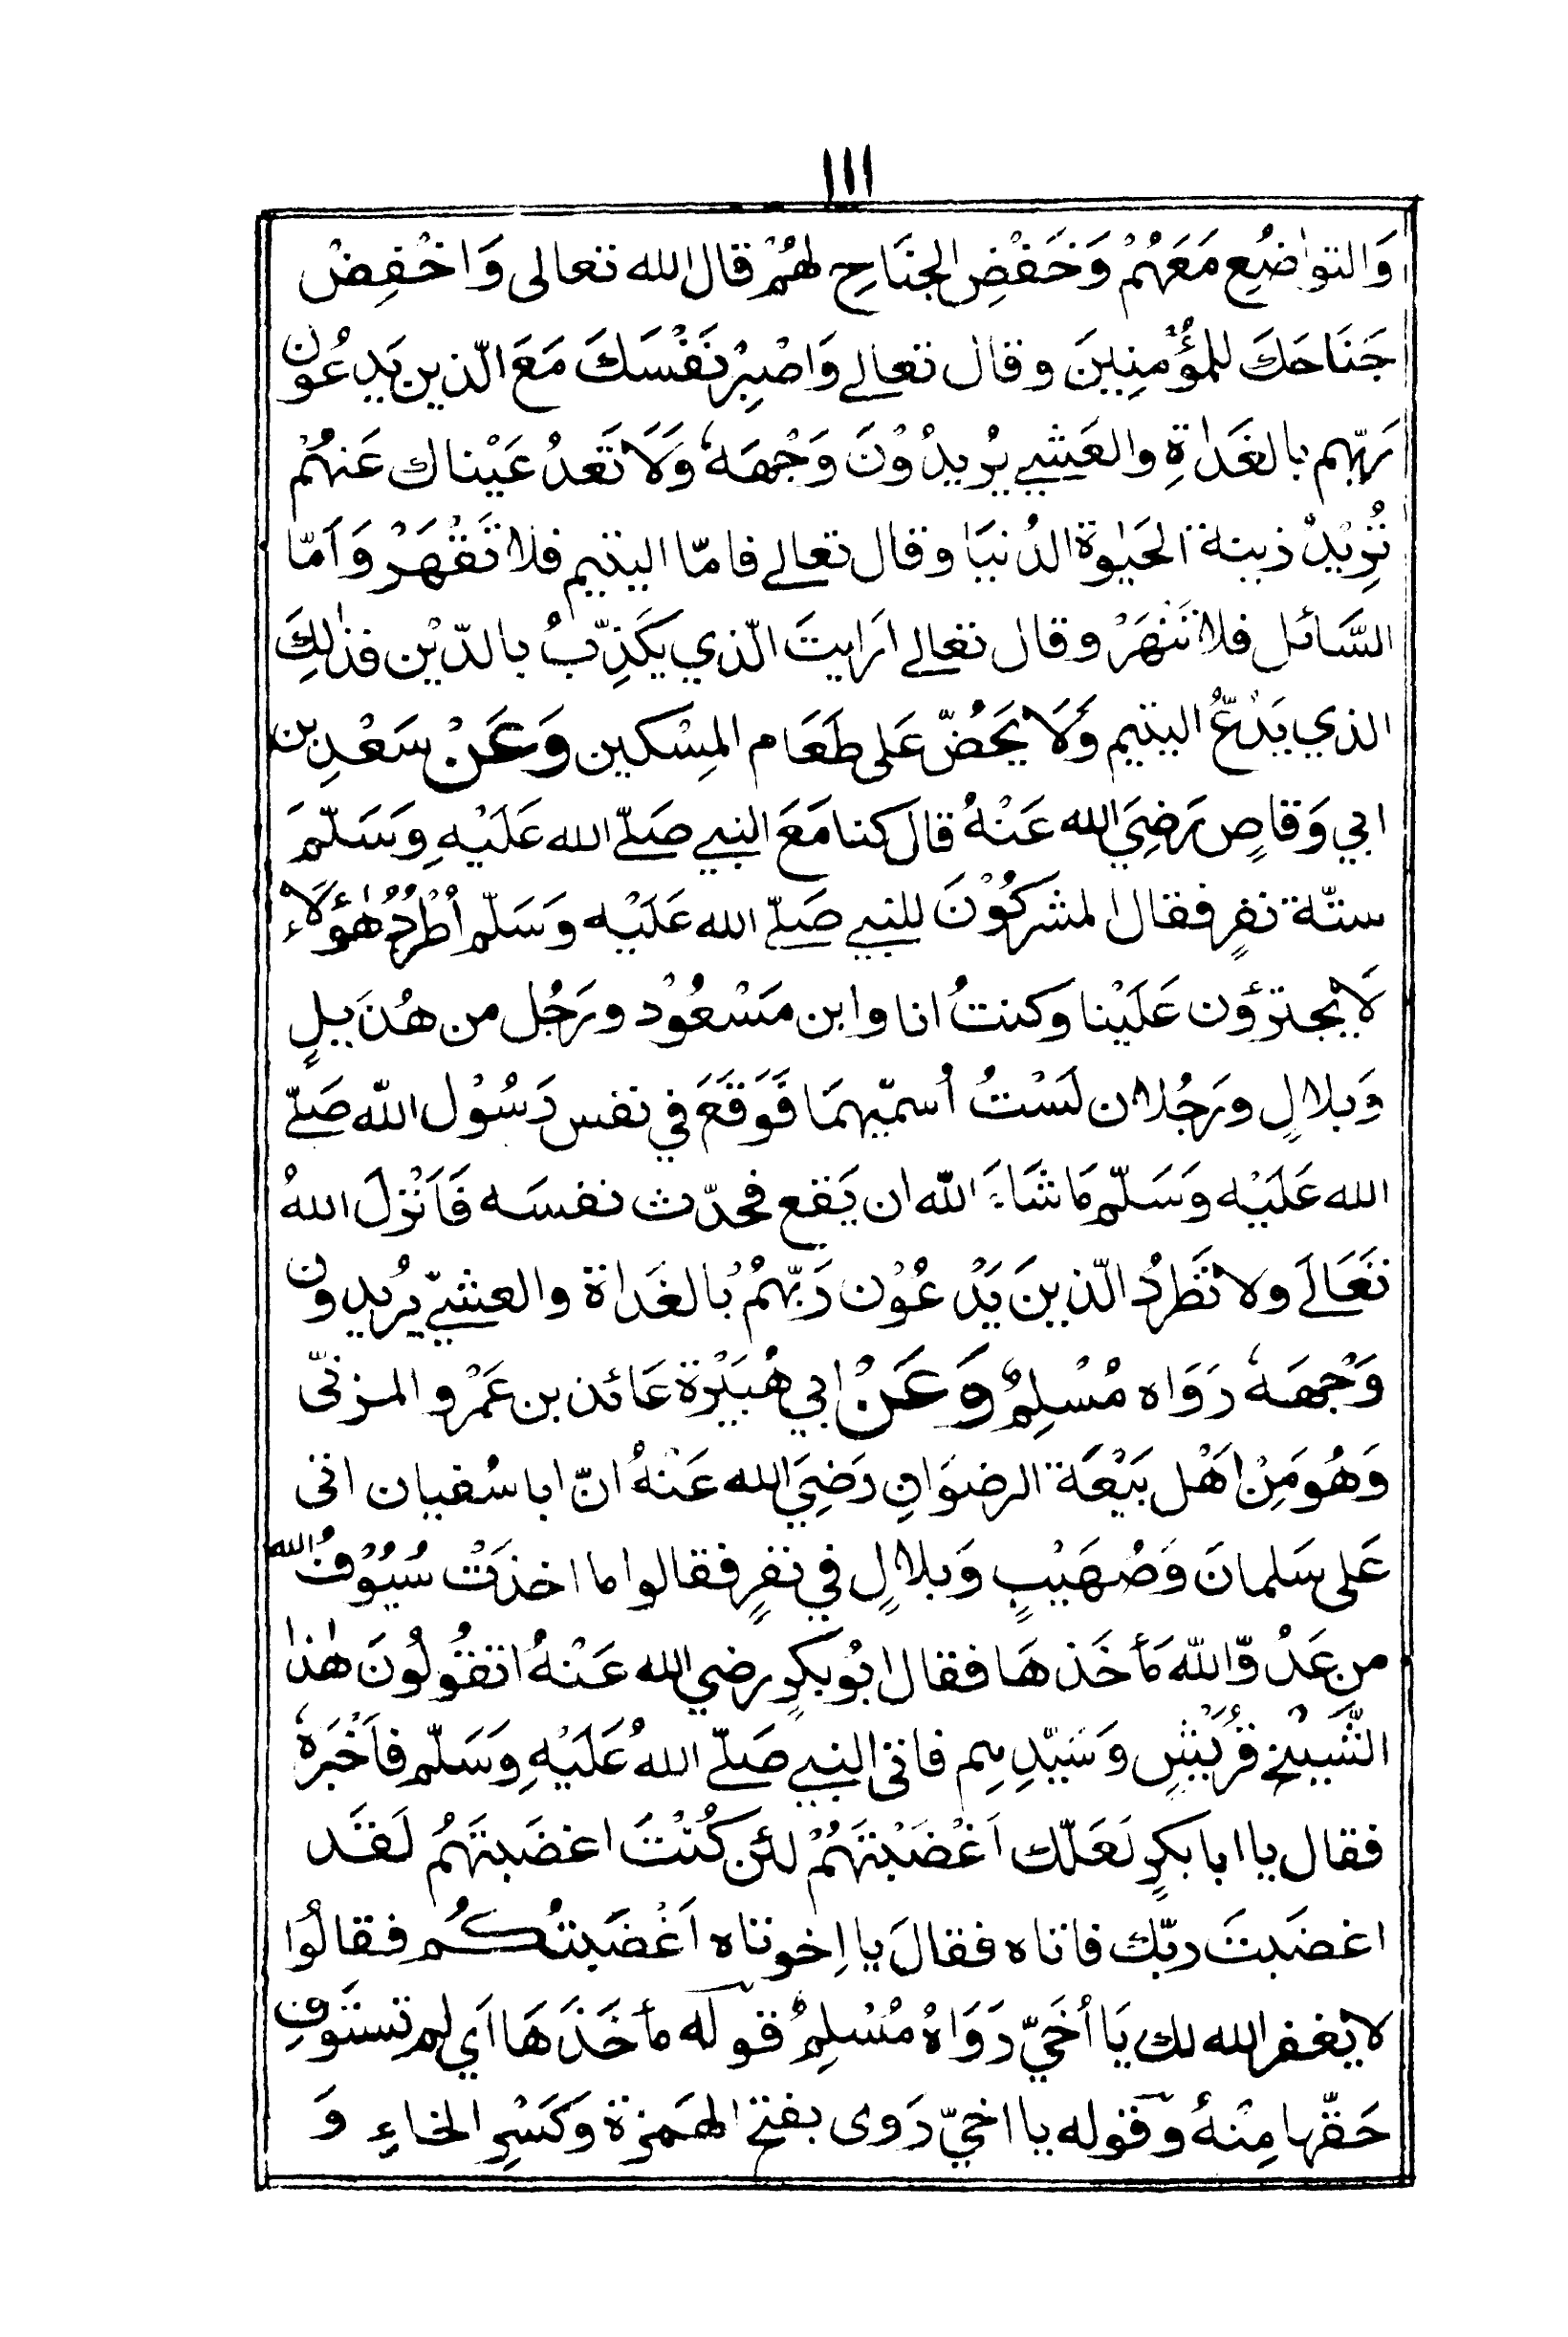 ١١١
وَالتواٰضُعِ مَعَهُمْ وَخَفْضِ الجنَاحِ لهُمْ قال الله تعالى وَاخْفِضْ
جَنَاحَكَ للمُؤْمنِينَ وقال تعالے وَاصْبِرْ نَفْسَكَ مَعَ الّذين يَدعُون
رَبّهم بالغَدٰاةِ والعَشِے يُريدُوْنَ وَجْهَهٗ وَلَا تَعدُ عَيْناك عَنهُمْ
تُرِيْدُ زينة الحَيٰوة الدُنيَا وقال تعالے فامّا اليتيم فلا تَقْهَرْ وَاَمّا
السَّائل فلا تَنْهَرْ وقال تعالے ارَايتَ الّذي يكَذِّبُ بالدّيْن فذٰلِكَ
الذي يَدُعُّ اليتيم وَلَا يَحُضّ عَلى طَعَام المِسْكين وَعَنْ سَعْدِ بن
ابي وَقاصٍ رَضِيَ الله عَنْهُ قالَ كنا مَعَ النبے صَلّے الله عَلَيْهِ وَسَلّمَ
ستّة نفرٍ فقال المشركُوْنَ للنبے صَلّے الله عَلَيْه وَسَلّم اُطْرُدْ هٰؤلَاءْ
لَا يجترؤن عَلَيْنا وكنتُ انا وابن مَسْعُوْد ورَجُل من هُذَيلٍ
وَبلالٍ ورَجُلان لَسْتُ اُسمّيهمَا فَوَقَعَ في نفس رَسُوْل الله صَلّے
الله عَلَيْه وَسَلّم مَا شَاءَ الله ان يَقع فحدّث نفسَه فَاَنْزلَ اللهُ
تعَالَے ولا تَطردُ الّذينَ يَدْعُوْن رَبّهُمْ بُالغَداة والعشےّ يُريدون
وَجْههٗ رَوَاه مُسْلِمٌ وَعَنْ ابي هُبَيْرة عَائذ بن عَمْرو المزنّى
وَهُوَ مِنْ اَهْل بَيْعَة الرضوَانِ رَضِيَ الله عَنْهُ انّ ابا سُفيان اتى
عَلى سَلمانَ وَصُهَيْبٍ وَبلالٍ في نفرٍ فقالوا ما اخذَتْ سُيُوْفُ الله
من عَدُوّ الله مَأخَذهَا فقال ابُو بكرٍ رضي الله عَنْهُ اتقُولُونَ هٰذا
الشَّيْخ قُرَيْشٍ وَسَيّدِهِم فاتى النبے صَلّے اللهُ عَلَيْهِ وَسَلّم فاَخْبَرهٗ
فقال يا ابا بكرٍ لَعَلّك اَغْضَبْتَهُمْ لئن كُنْتَ اغضَبتَهُم لَقَد
اغضَبتَ ربّك فاتاه فقالَ يا اِخوتاه اَغْضَبتُكُم فقالُوا
لا يغفر الله لك يَا اُخَيّ رَوَاهُ مُسْلِمٌ قوله مأخَذَهَا اَي لم تستَوفِ
حَقّها مِنْهُ وَقوله يا اخيّ رَوى بفتح الهَمزة وَكَسْرِ الخاءِ وَ